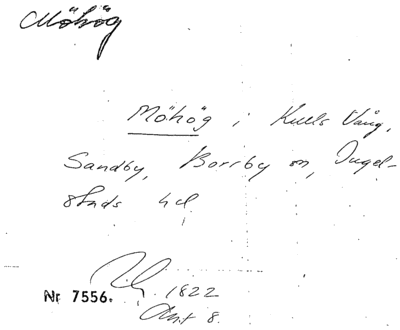 Möhög
Möhög i Kulls Vång,
Sandby, Borrby sn, Ingel-
stads hd.
Nr 7556. 1822
Akt 8.